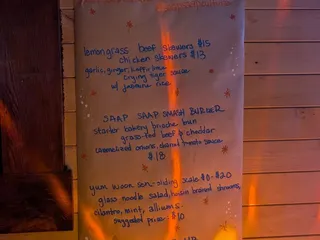 lemongrass beef skewers $15
chicken skewers $13
garlic, ginger,
crying tiger sauce
w/ jasmine rice
JAAP SAAP SMASH BURGER
starter bakery brioche bun
grass-fed beef & cheddar
caramelized onions, dried tomato sauce
$18
yum woon sen - sliding scale $0-$20
glass noodle salad, brined shrooms,
cilantro, mint, alliums
suggested price: $10